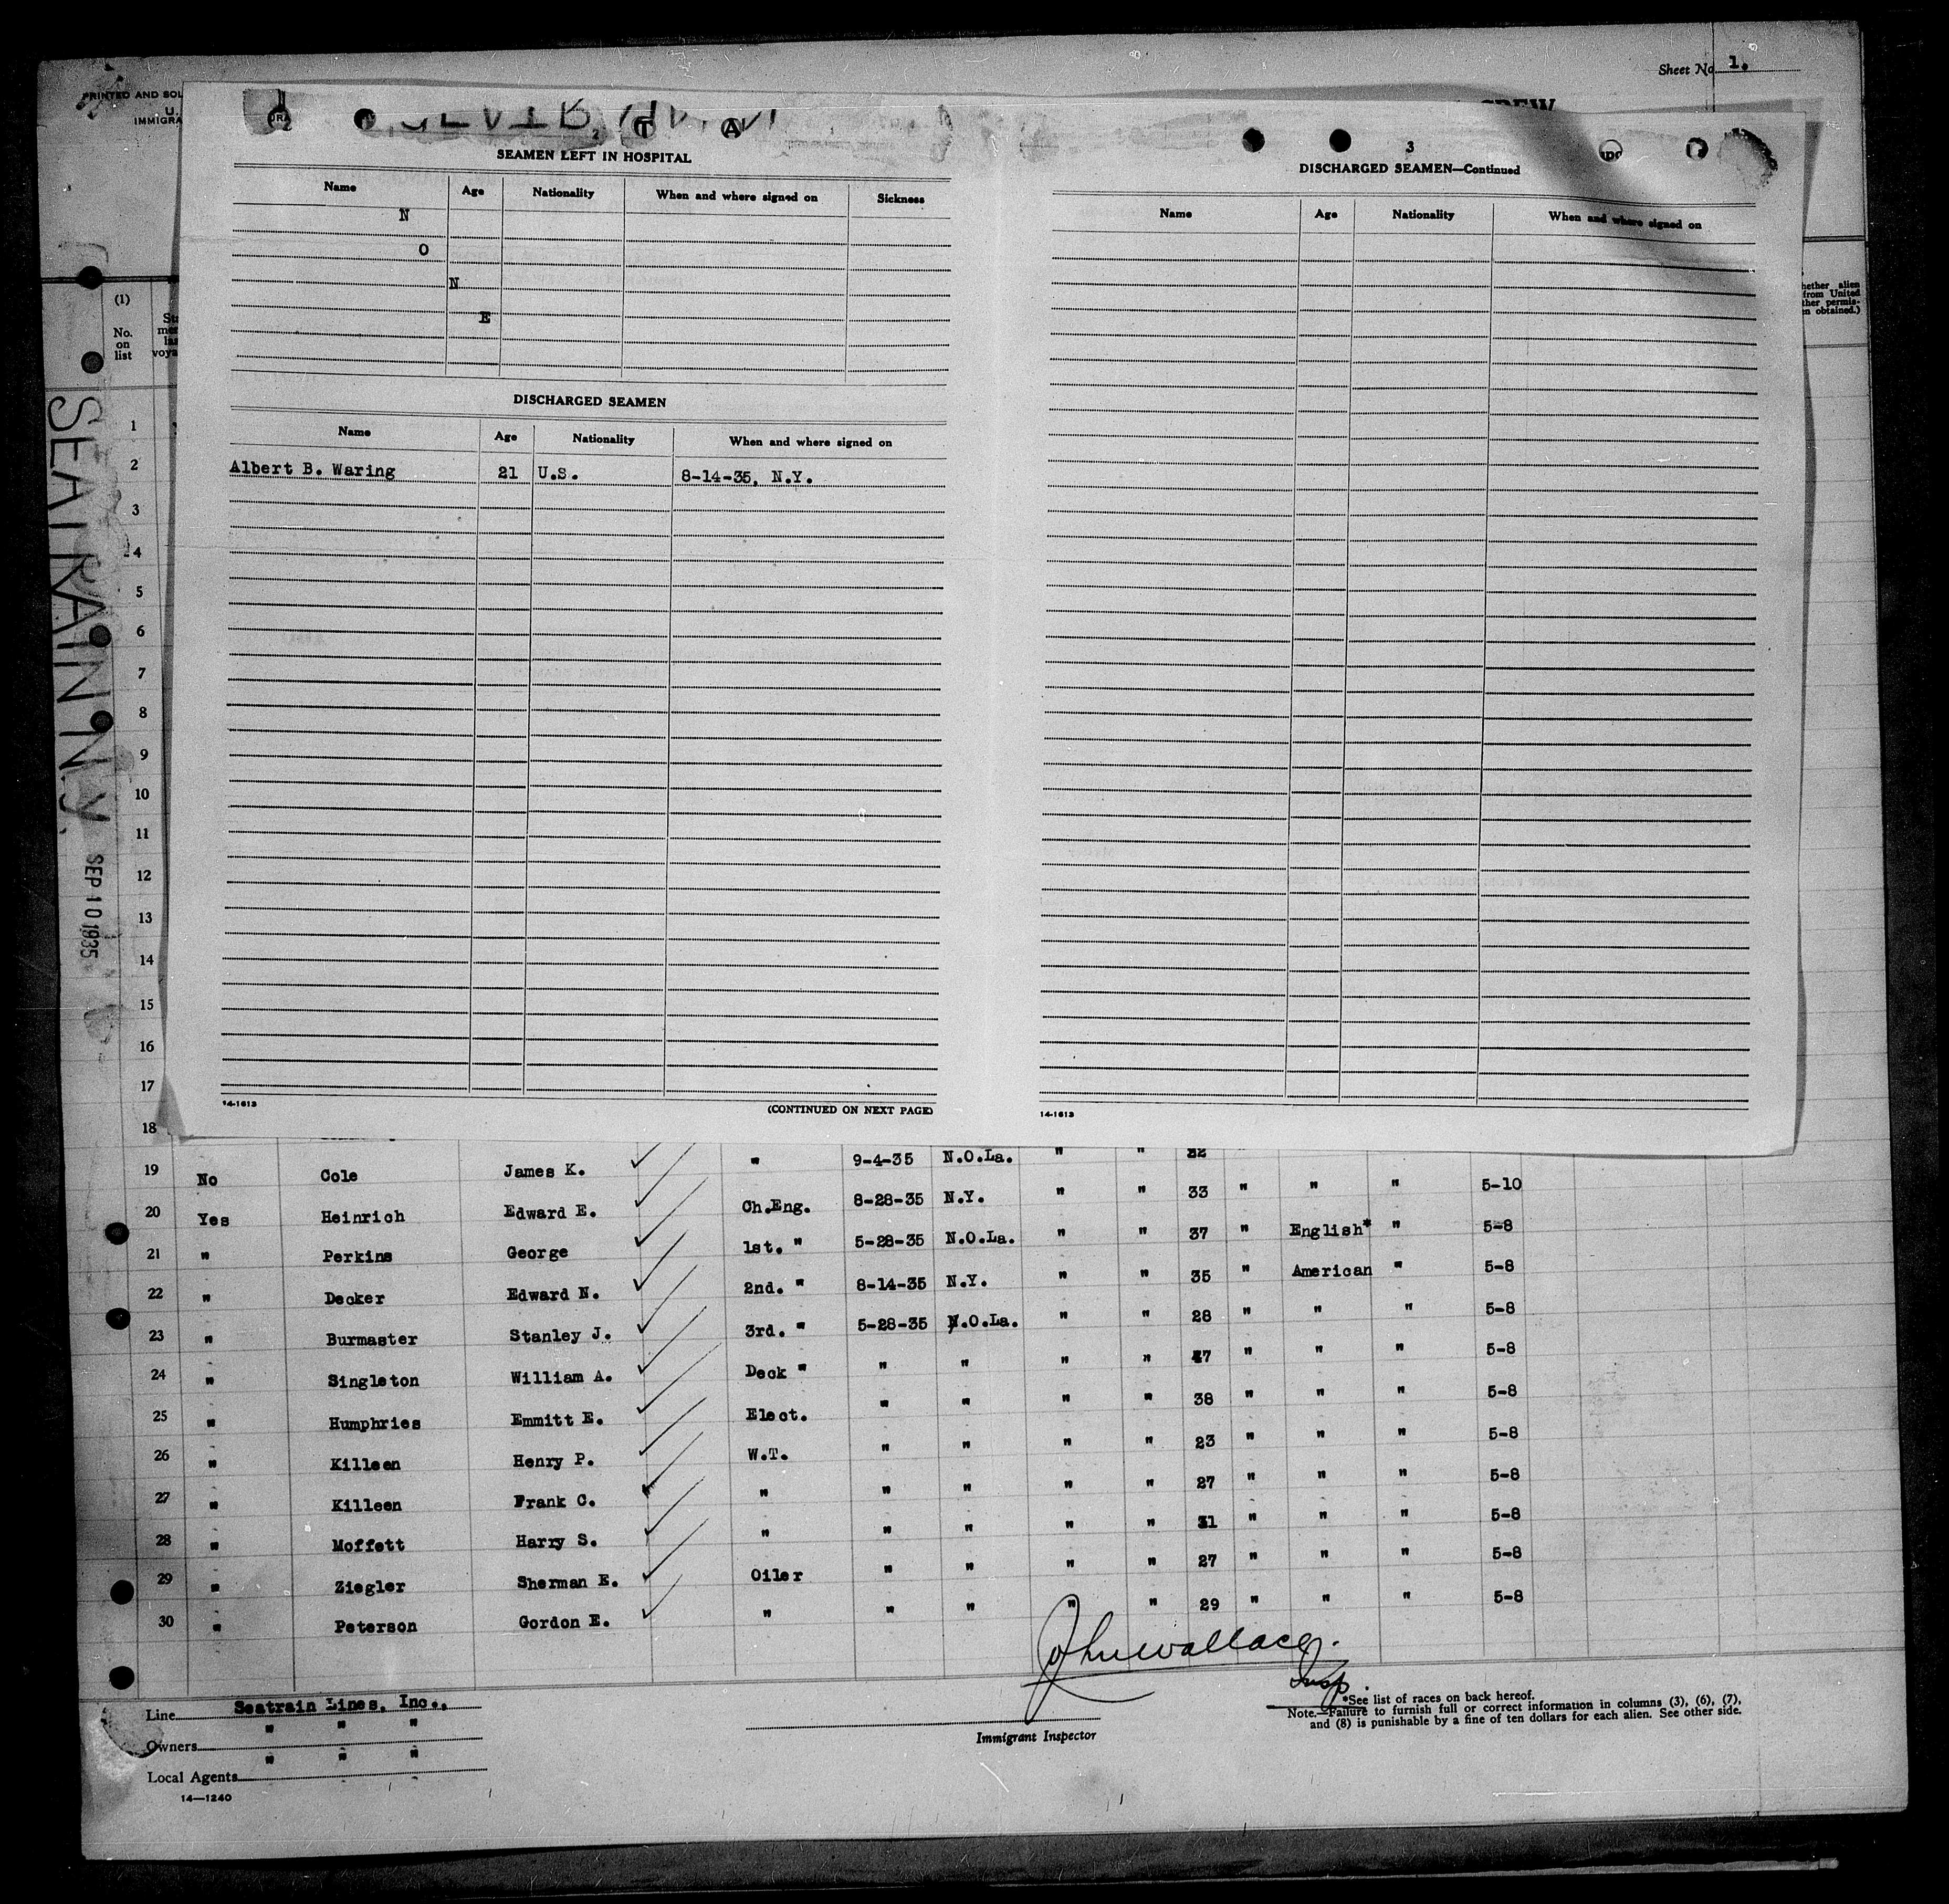 Sheet No 1.
PRINTED AND SOL
U.
IMMIGRA
CREW
2
SEAMEN LEFT IN HOSPITAL
Name Age Nationality When and where signed on Sickness
N
O
N
E
DISCHARGED SEAMEN
Name Age Nationality When and where signed on
Albert B. Waring 21 U.S. 8-14-35, N.Y.
14-1613
(CONTINUED ON NEXT PAGE)
3
DISCHARGED SEAMEN—Continued
Name Age Nationality When and where signed on
14-1613
hether alien
from United
ther permis-
n obtained.)
(1)
No.
on
list
SEATRAIN N.Y.
SEP 10 1935
1
2
3
4
5
6
7
8
9
10
11
12
13
14
15
16
17
18
19 No Cole James K. " 9-4-35 N.O.La. " " 32
20 Yes Heinrich Edward E. Ch.Eng. 8-28-35 N.Y. " " 33 " " " 5-10
21 " Perkins George 1st. " 5-28-35 N.O.La. " " 37 " English* " 5-8
22 " Decker Edward N. 2nd. " 8-14-35 N.Y. " " 35 " American " 5-8
23 " Burmaster Stanley J. 3rd. " 5-28-35 N.O.La. " " 28 " " " 5-8
24 " Singleton William A. Deck " " " " " 47 " " " 5-8
25 " Humphries Emmitt E. Elect. " " " " 38 " " " 5-8
26 " Killeen Henry P. W.T. " " " " 23 " " " 5-8
27 " Killeen Frank C. " " " " " 27 " " " 5-8
28 " Moffett Harry S. " " " " " 31 " " " 5-8
29 " Ziegler Sherman E. Oiler " " " " 27 " " " 5-8
30 " Peterson Gordon E. " " " " " 29 " " " 5-8
John Wallace.
Insp.
Immigrant Inspector
*See list of races on back hereof.
Note.—Failure to furnish full or correct information in columns (3), (6), (7),
and (8) is punishable by a fine of ten dollars for each alien. See other side.
Line Seatrain Lines, Inc.,
Owners " " "
Local Agents " " "
14—1240